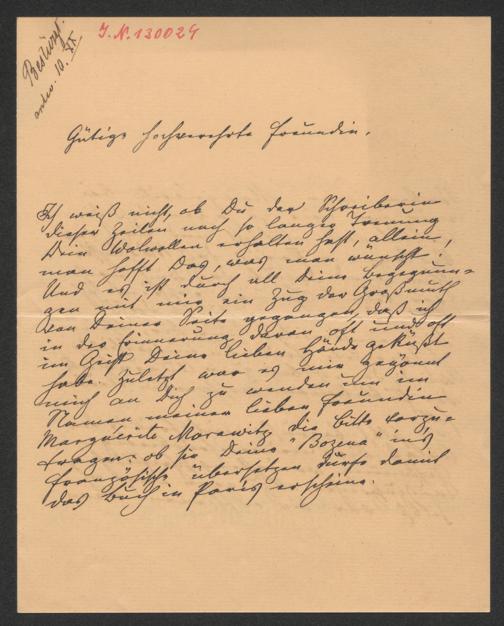 J. N. 130029
Bestürzt.
antw. 10. XI
Gütige hochverehrte Freundin.
Ich weiß nicht, ob Du der Schreiberin
dieser Zeilen nach so langer Trennung
Dein Wolwollen erhalten hast, allein,
man hofft das, was man wünscht!
Und es ist durch all Deine Begegnun=
gen mit mir ein Zug der Großmuth
von Deiner Seite gegangen, daß ich
in der Erinnerung daran oft und oft
im Geist Deine lieben Hände geküßt
habe. Zuletzt war es mir gegönnt
mich an Dich zu wenden um im
Namen meiner lieben Freundin
Marguerite Morawitz die Bitte vorzu=
tragen: ob sie Deine "Bozena" ins
französische übersetzen dürfe damit
das Buch in Paris erscheine.